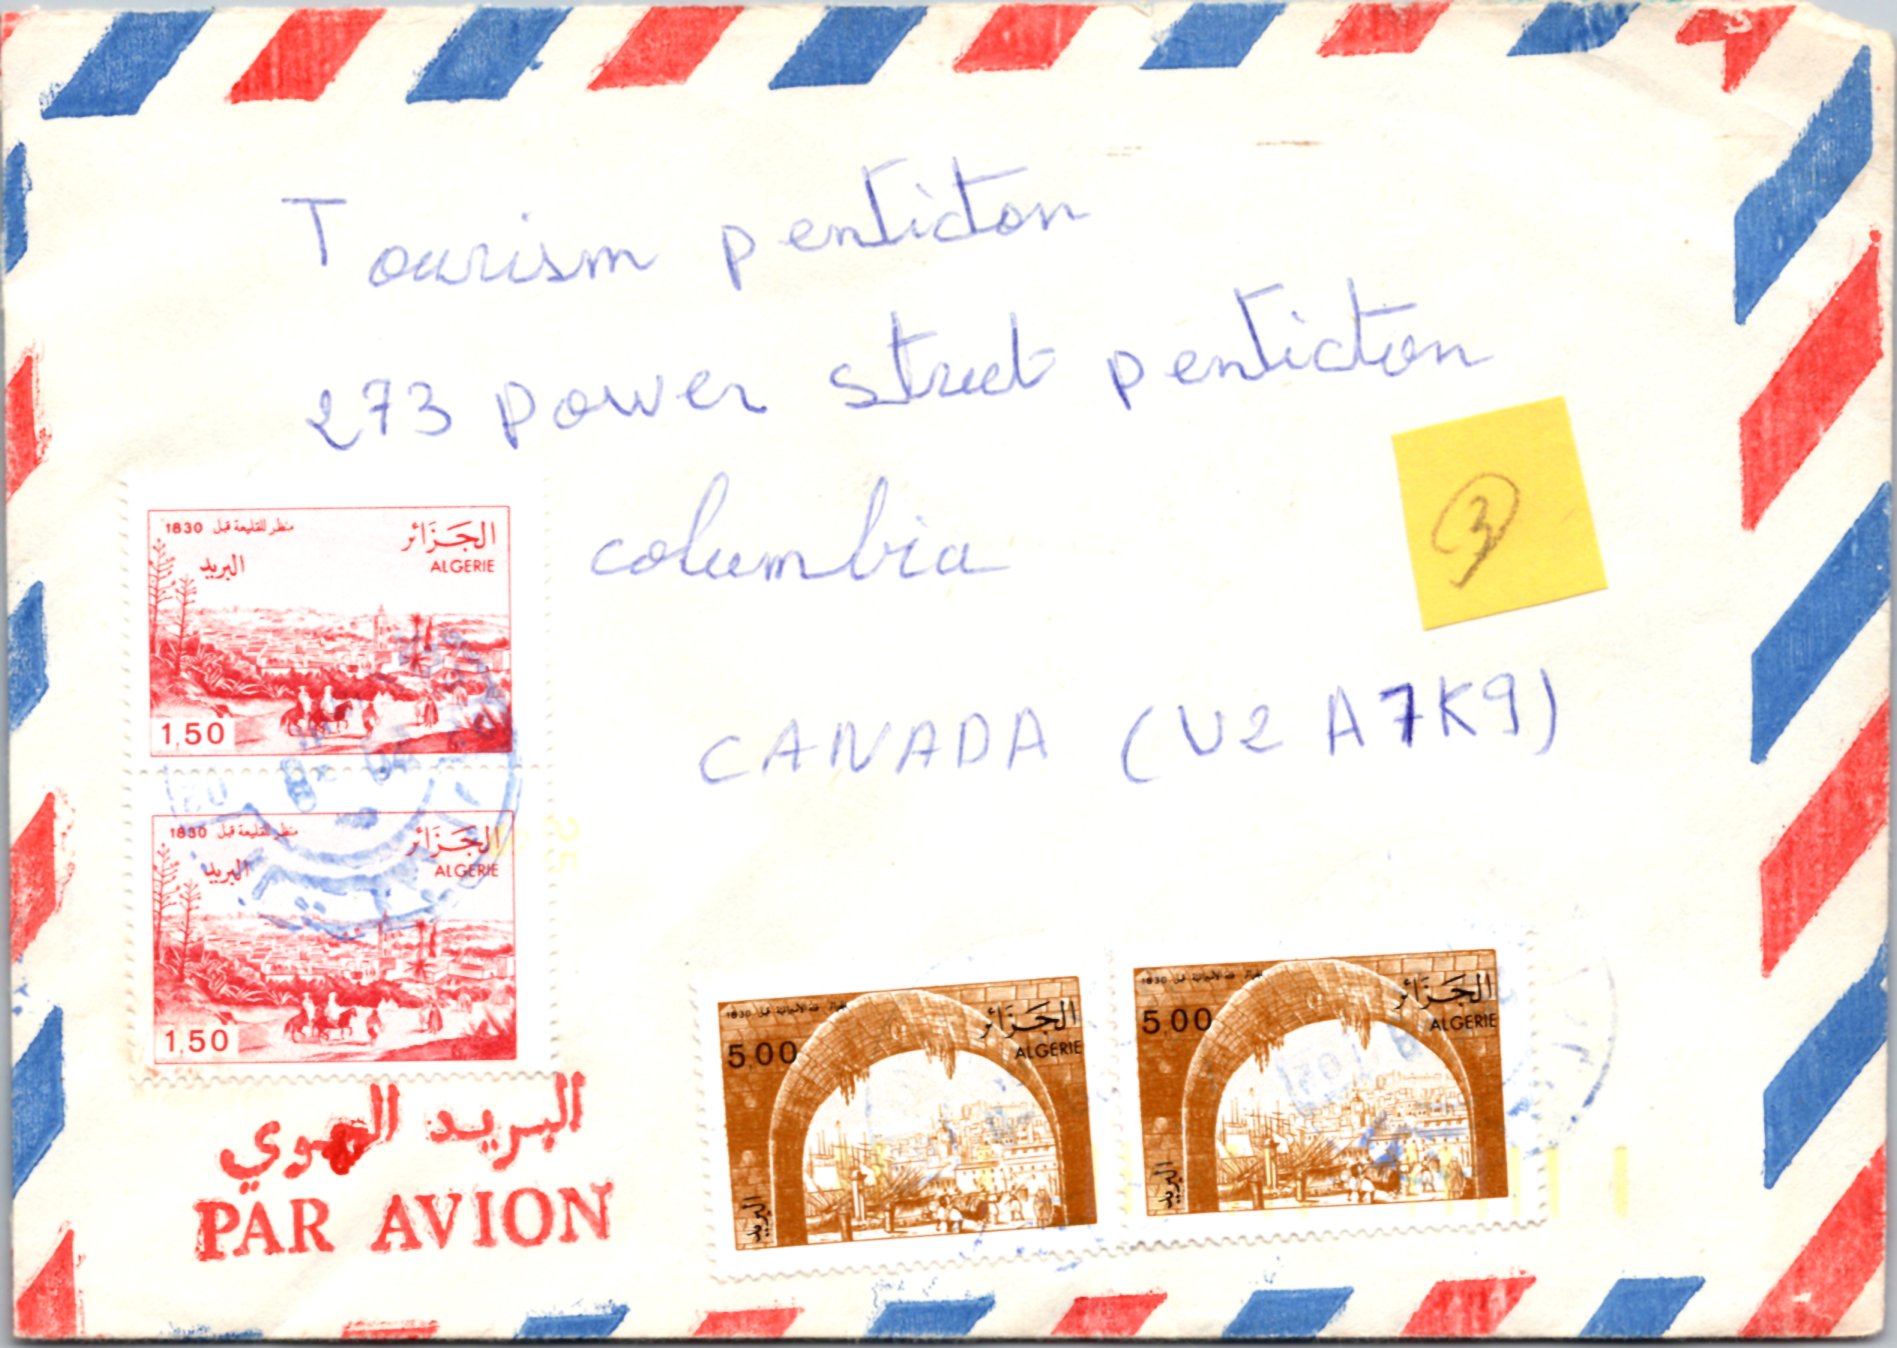 Tourism penticton
273 power street penticton
columbia
3
CANADA (V2 A7K9)
1830 منظر للقليعة قبل
الجزائر
ALGERIE
البريد
1,50
1830 منظر للقليعة قبل
الجزائر
ALGERIE
البريد
1,50
البريد الجوي
PAR AVION
1830
الجَزَائر
5,00
ALGERIE
البريد
1830
الجَزَائر
5,00
ALGERIE
البريد